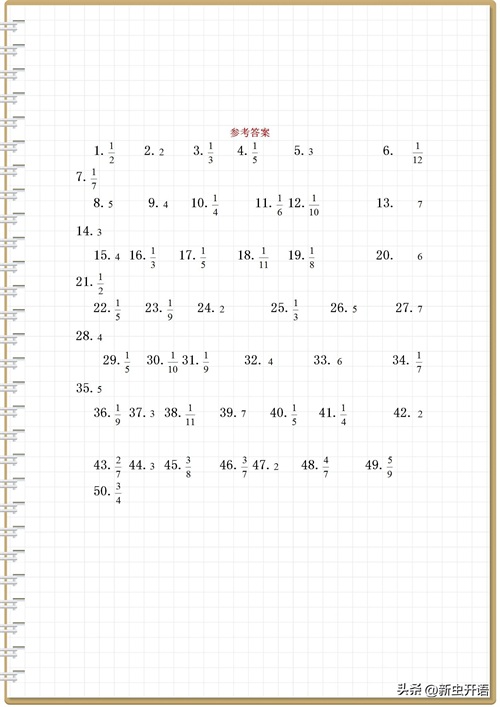 参考答案
1. 1/2 2. 2 3. 1/3 4. 1/5 5. 3 6. 1/12
7. 1/7
8. 5 9. 4 10. 1/4 11. 1/6 12. 1/10 13. 7
14. 3
15. 4 16. 1/3 17. 1/5 18. 1/11 19. 1/8 20. 6
21. 1/2
22. 1/5 23. 1/9 24. 2 25. 1/3 26. 5 27. 7
28. 4
29. 1/5 30. 1/10 31. 1/9 32. 4 33. 6 34. 1/7
35. 5
36. 1/9 37. 3 38. 1/11 39. 7 40. 1/5 41. 1/4 42. 2
43. 2/7 44. 3 45. 3/8 46. 3/7 47. 2 48. 4/7 49. 5/9
50. 3/4
头条 @新虫开语